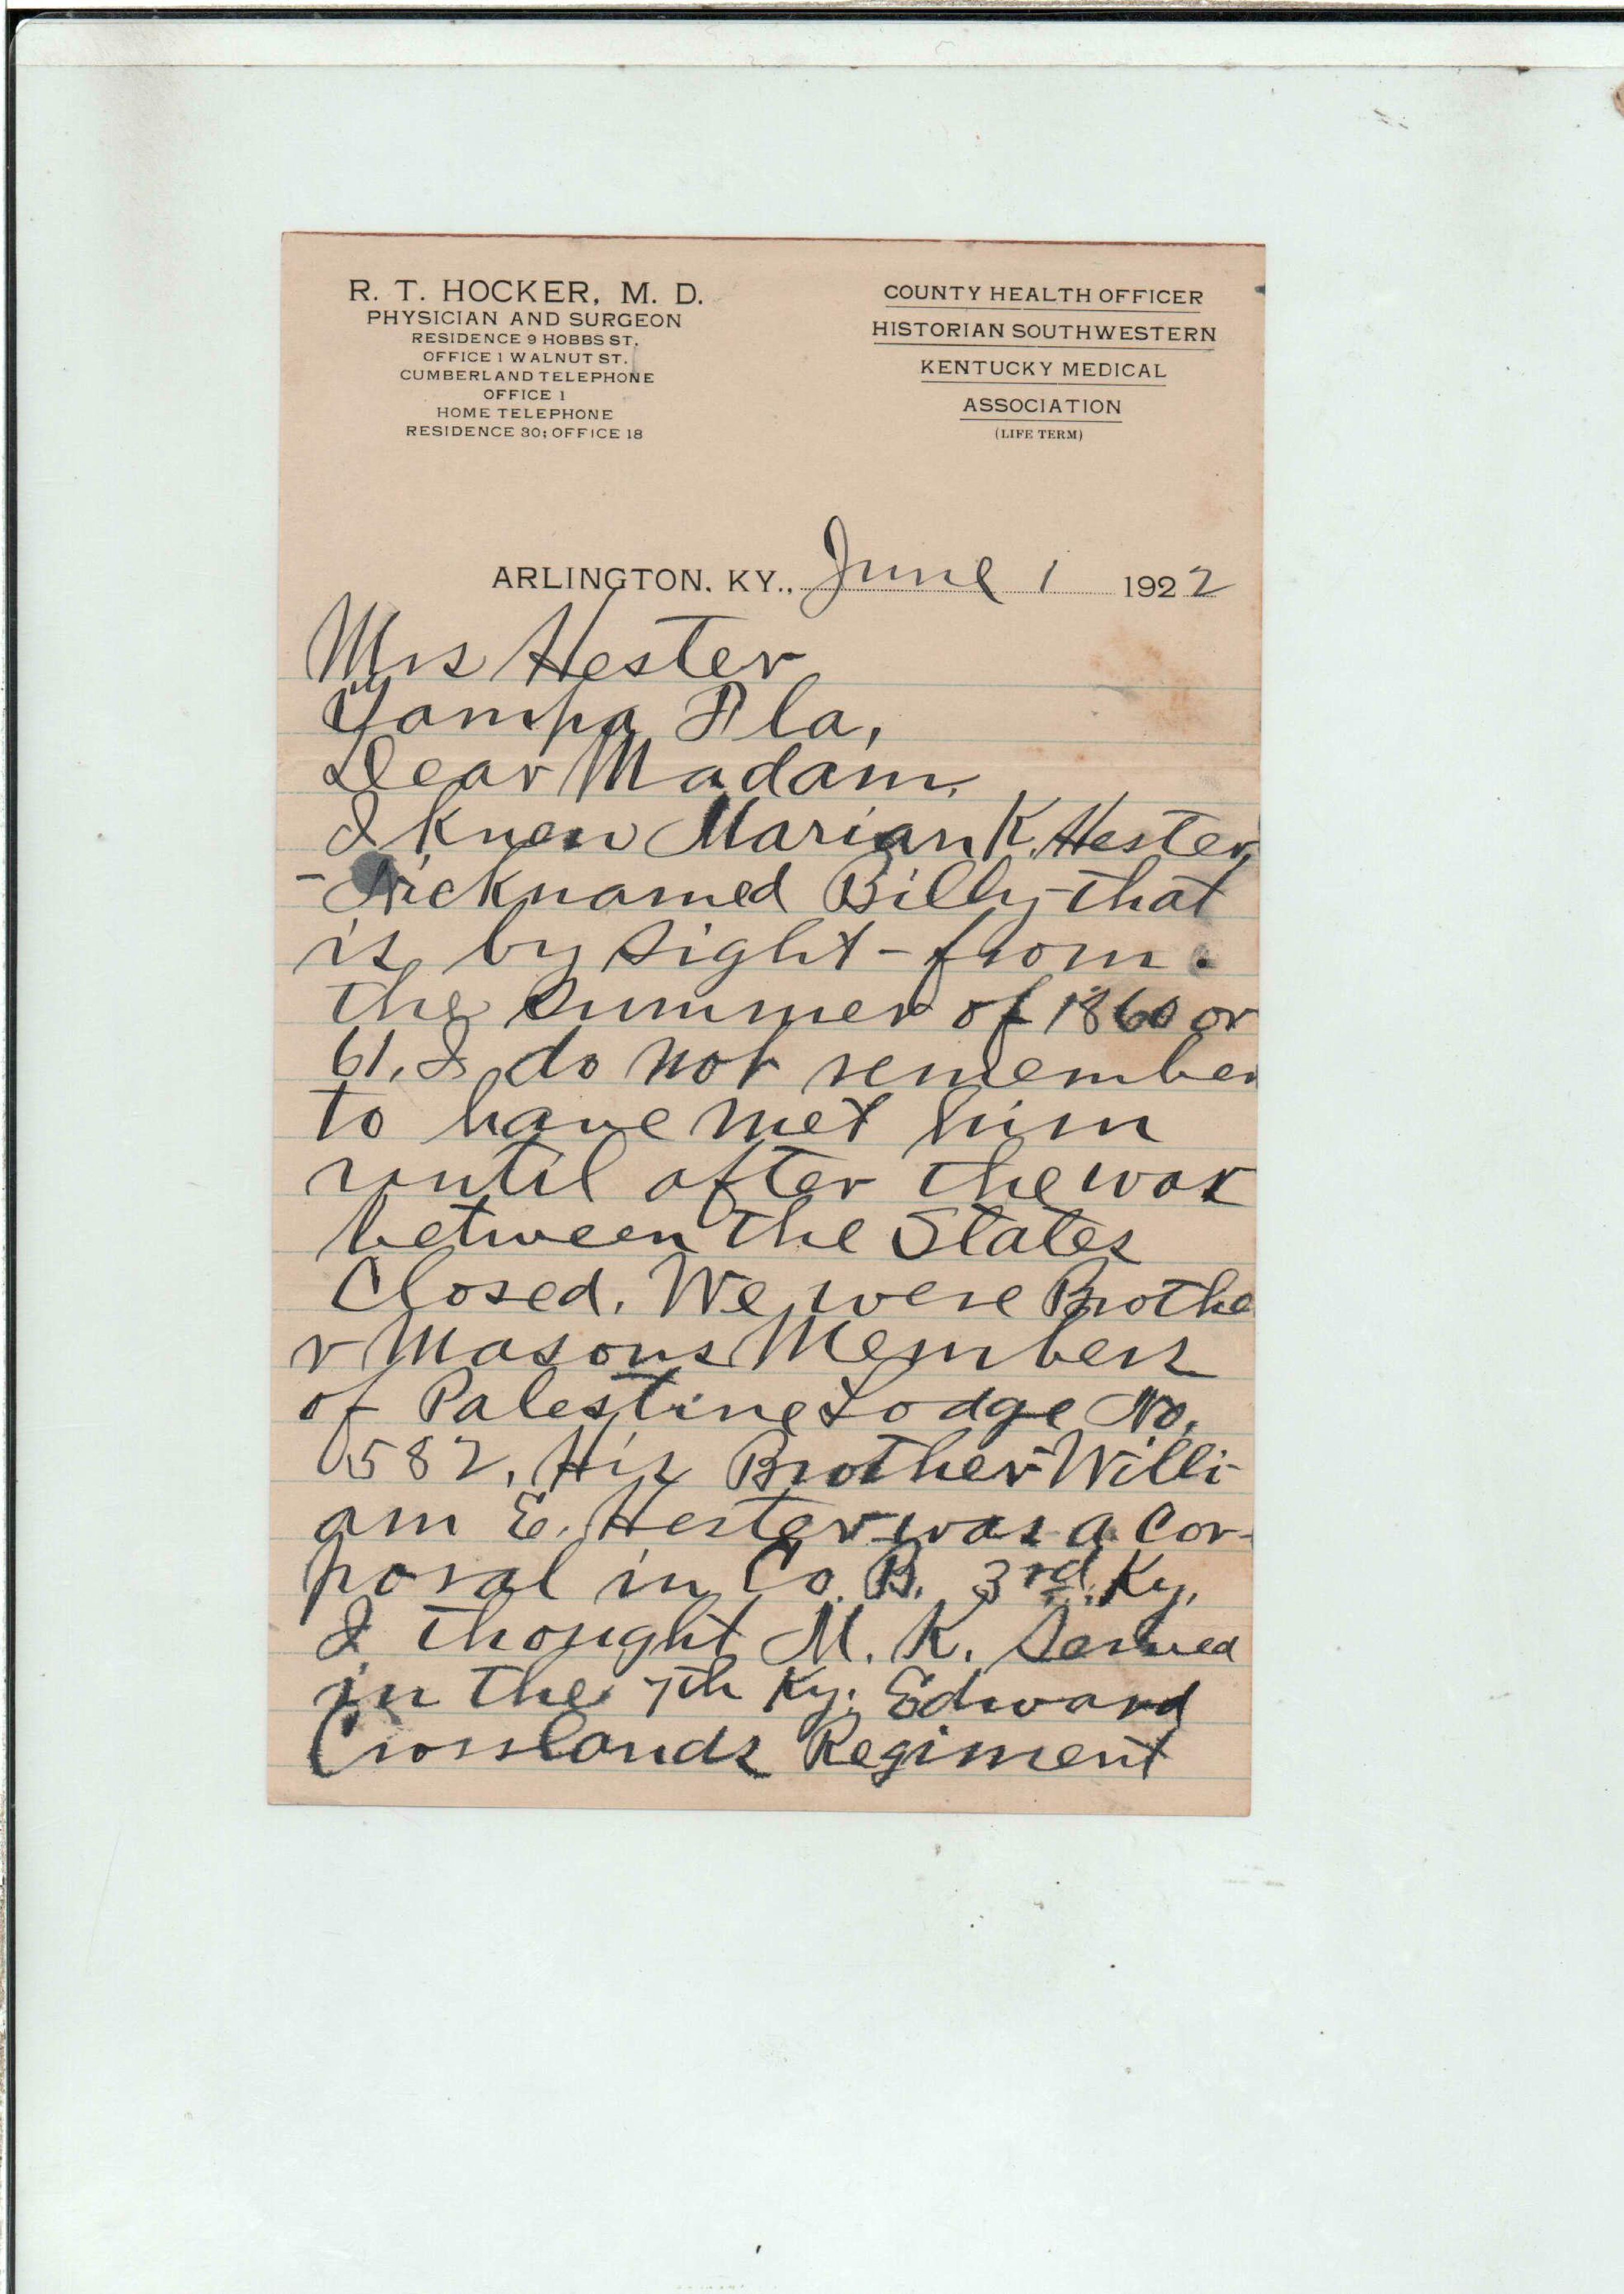 R. T. HOCKER, M. D.
PHYSICIAN AND SURGEON
RESIDENCE 9 HOBBS ST.
OFFICE 1 WALNUT ST.
CUMBERLAND TELEPHONE
OFFICE 1
HOME TELEPHONE
RESIDENCE 30; OFFICE 18
COUNTY HEALTH OFFICER
HISTORIAN SOUTHWESTERN
KENTUCKY MEDICAL
ASSOCIATION
(LIFE TERM)
ARLINGTON, KY., June 1 1922
Mrs Hester
Tampa Fla,
Dear Madam.
I knew Marian K. Hester,
- Nicknamed Billy - that
is by sight - from
the summer of 1860 or
61, I do not remember
to have met him
until after the war
between the States
Closed. We were Brothe
r Masons Members
of Palestine Lodge No.
582. His Brother - Willi-
am E. Hester - was a Cor-
poral in Co. B. 3rd Ky.
I thought M. K. Served
in the 7th Ky. Edward
Crosslands Regiment